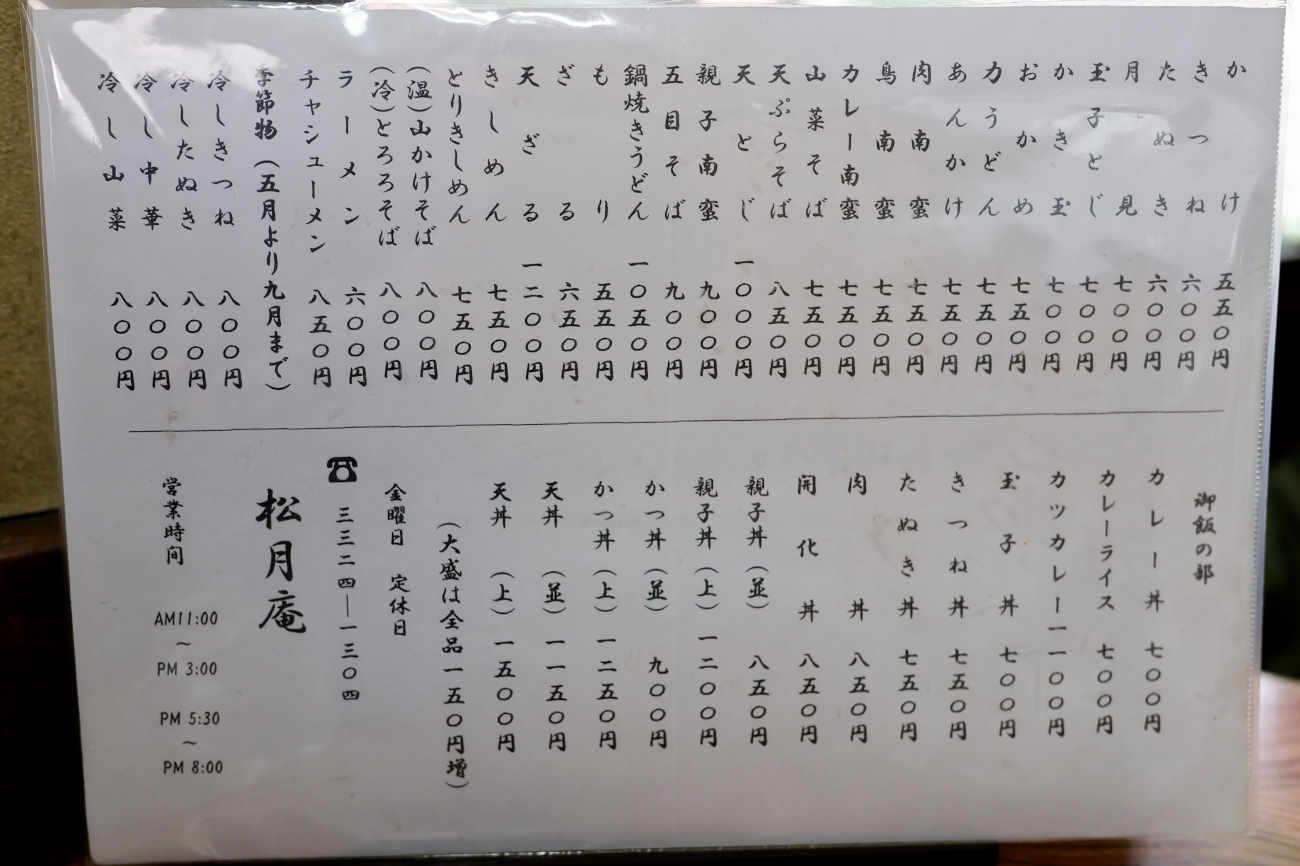 かけ 五五〇円
きつね 六〇〇円
たぬき 六〇〇円
月見 七〇〇円
玉子とじ 七〇〇円
かき玉 七〇〇円
おかめ 七五〇円
力うどん 七五〇円
あんかけ 七五〇円
肉南蛮 七五〇円
鳥南蛮 七五〇円
カレー南蛮 七五〇円
山菜そば 七五〇円
天ぷらそば 八五〇円
天とじ 一〇〇〇円
親子南蛮 九〇〇円
五目そば 九〇〇円
鍋焼きうどん 一〇五〇円
もり 五五〇円
ざる 六五〇円
天ざる 一二〇〇円
きしめん 七五〇円
とりきしめん 七五〇円
(温)山かけそば 八〇〇円
(冷)とろろそば 八〇〇円
ラーメン 六〇〇円
チャシューメン 八五〇円
季節物(五月より九月まで)
冷しきつね 八〇〇円
冷したぬき 八〇〇円
冷し中華 八〇〇円
冷し山菜 八〇〇円
御飯の部
カレー丼 七〇〇円
カレーライス 七〇〇円
カツカレー 一一〇〇円
玉子丼 七〇〇円
きつね丼 七五〇円
たぬき丼 七五〇円
肉丼 八五〇円
開化丼 八五〇円
親子丼(並) 八五〇円
親子丼(上) 一二〇〇円
かつ丼(並) 九〇〇円
かつ丼(上) 一二五〇円
天丼(並) 一一五〇円
天丼(上) 一五〇〇円
(大盛は全品一五〇円増)
金曜日 定休日
☎ 三三二四―一三〇四
松月庵
営業時間
AM11:00
〜
PM 3:00
PM 5:30
〜
PM 8:00